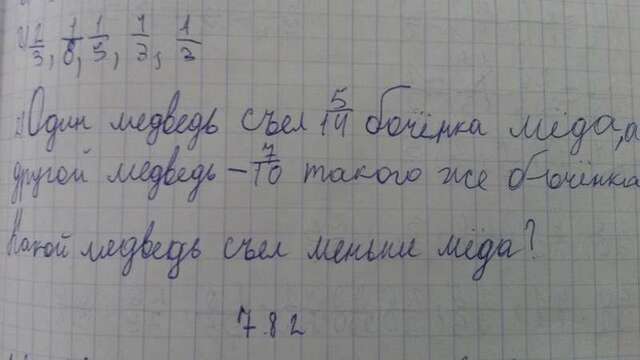 1/3, 1/8, 1/5, 1/3, 1/3
Один медведь съел 5/14 бочёнка мёда, а
другой медведь – 7/10 такого же бочёнка
Какой медведь съел меньше мёда?
782